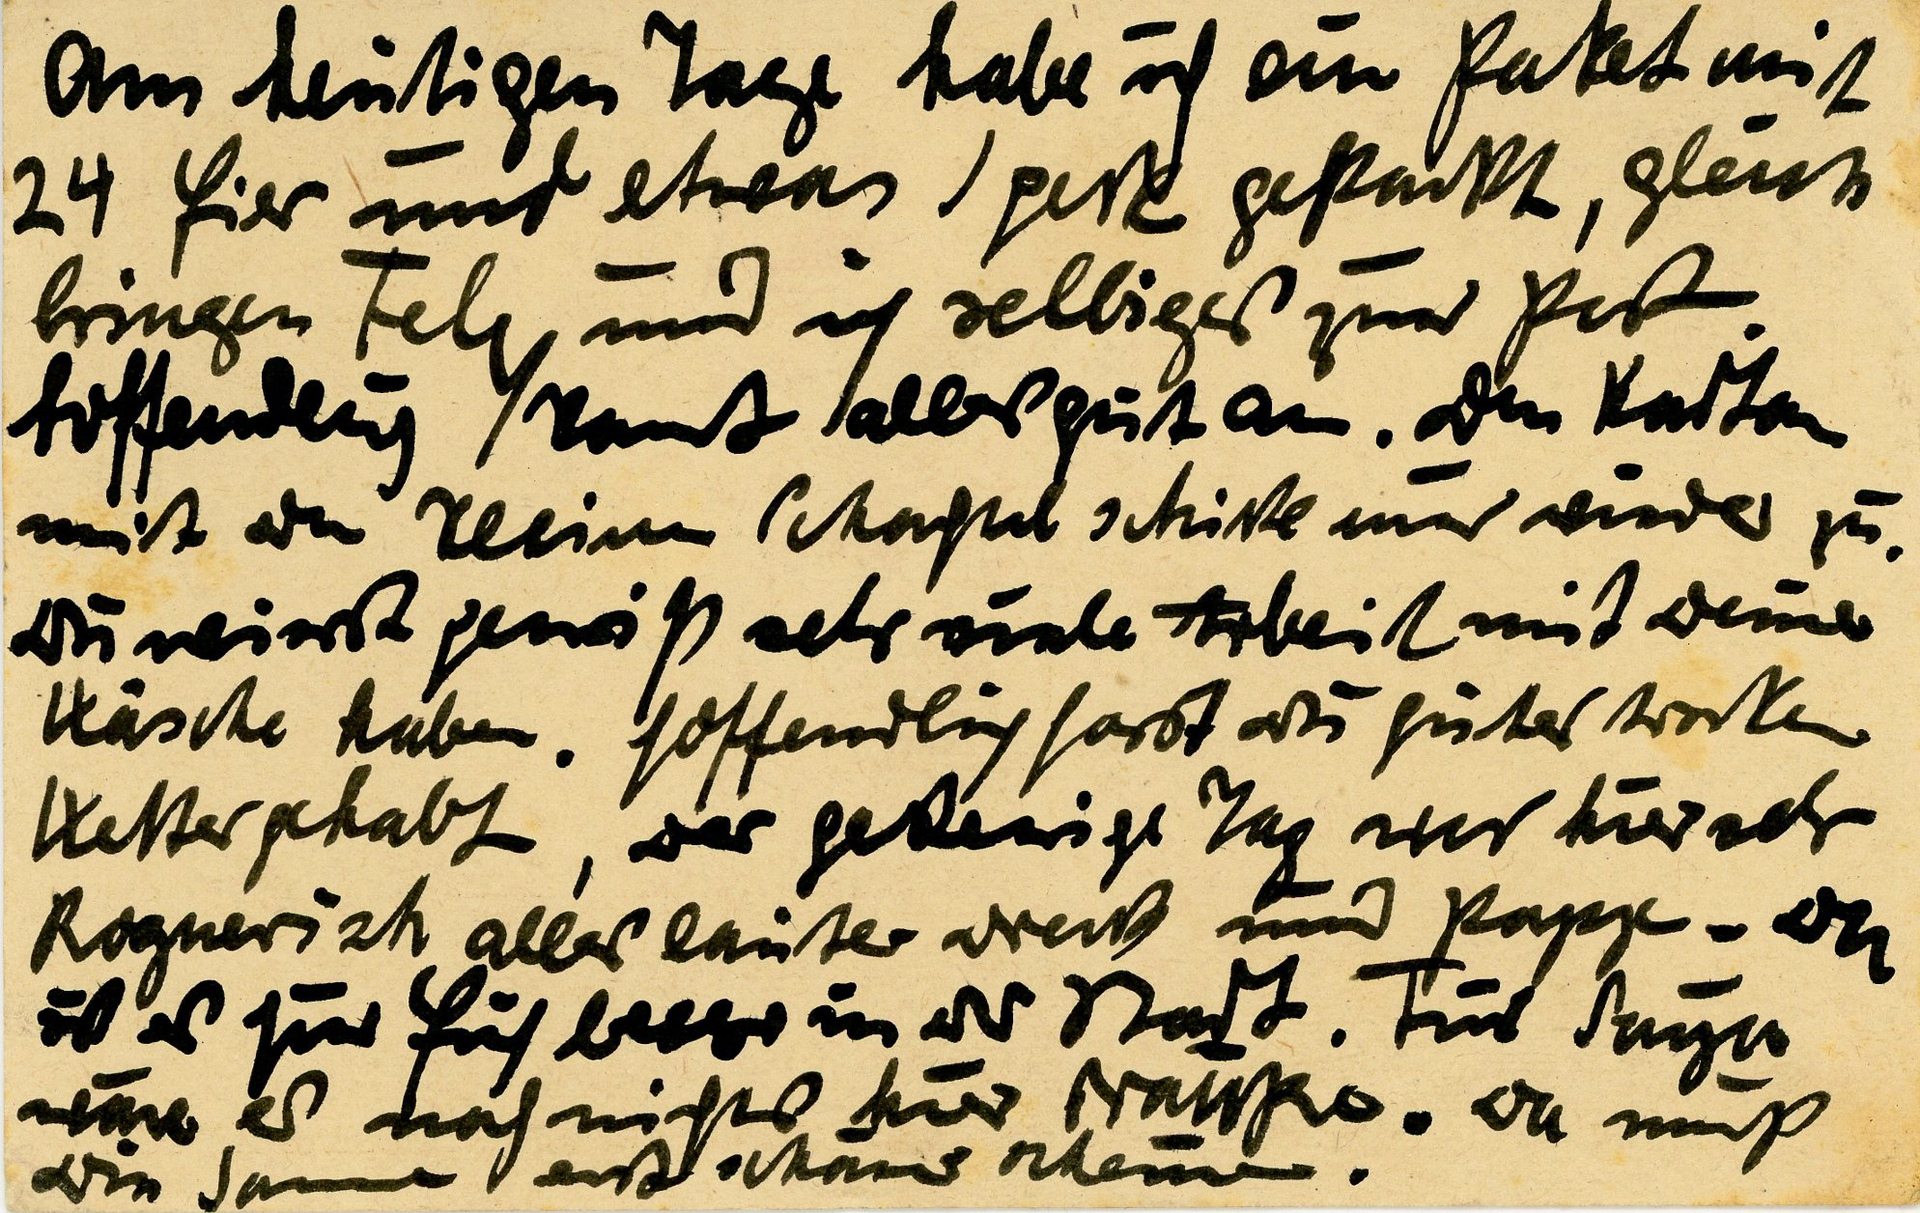 Am heutigen Tage habe ich ein Paket mit
24 Eier und etwas Speck gepackt, gleich
bringen Felx und ich selbiges zur Post.
Hoffendlich kommt alles gut an. Den Karton
mit den kleinen Schachtel schicke mir wieder zu.
Du wirst gewiß sehr viele Arbeit mit deiner
Wäsche haben. Hoffendlich hast du gutes trocken
Wetter gehabt, der gestrige Tag war hier sehr
Regnerisch alles lauter Dreck und Pappe - da
ist es für Euch besser in der Stadt. Für
wäre es noch nichts hier draußen. Da muß
die Sonne erst schöner scheinen.